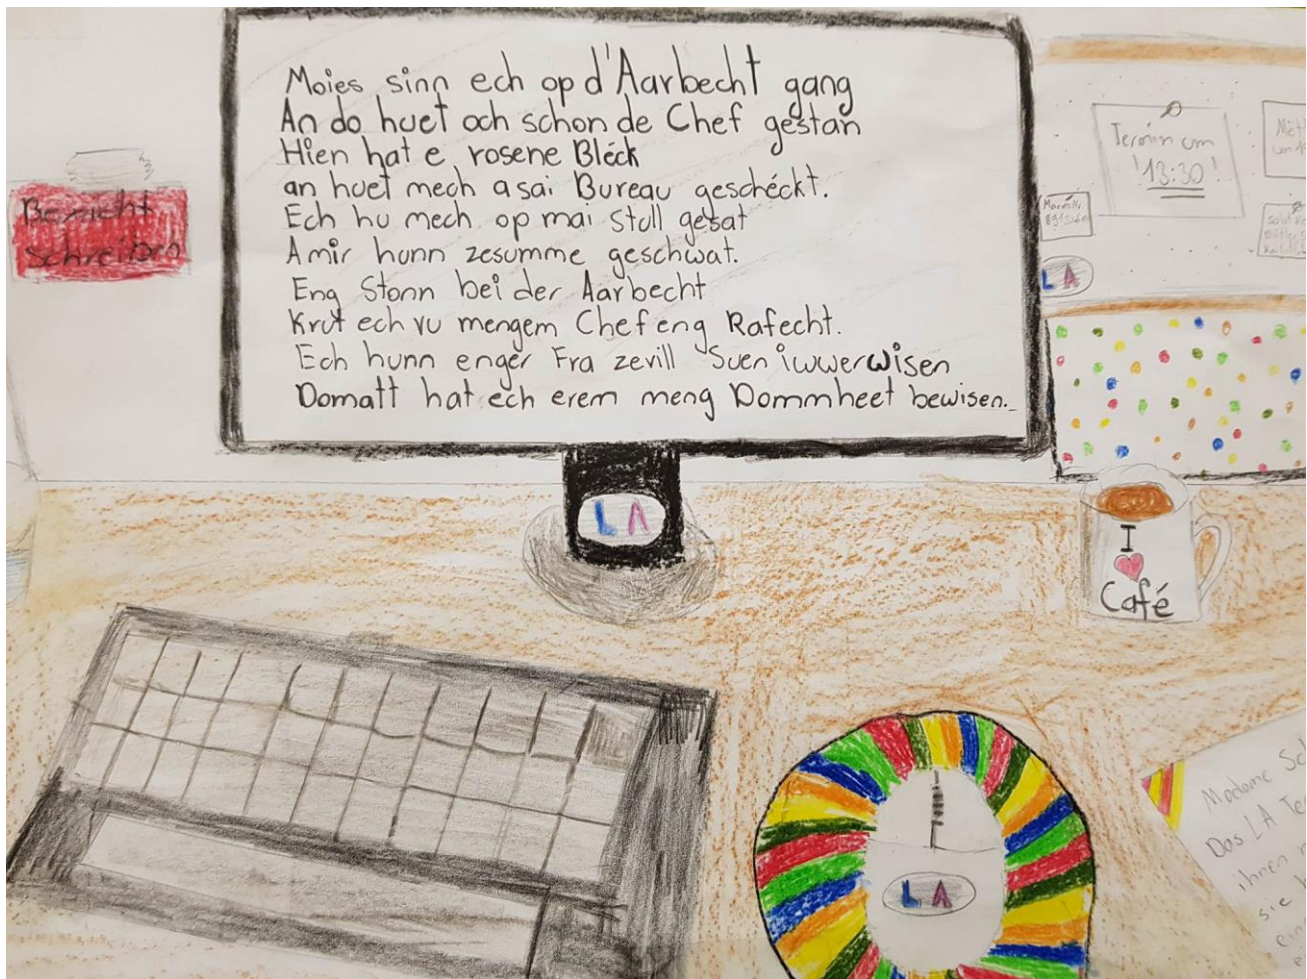 Moies sinn ech op d'Aarbecht gang
An do huet och schon de Chef gestan
Hien hat e rosene Bléck
an huet mech a sai Bureau geschéckt.
Ech hu mech op mai Stull gesat
A mir hunn zesumme geschwat.
Eng Stonn bei der Aarbecht
Krut ech vu mengem Chef eng Rafecht.
Ech hunn enger Fra zevill Suen iwwerwisen
Domatt hat ech erem meng Dommheet bewisen.
Bericht
schreiben
Termin um
!13:30!
L A
L A
I
Café
L A
Madame
Das LA
ihnen
sie